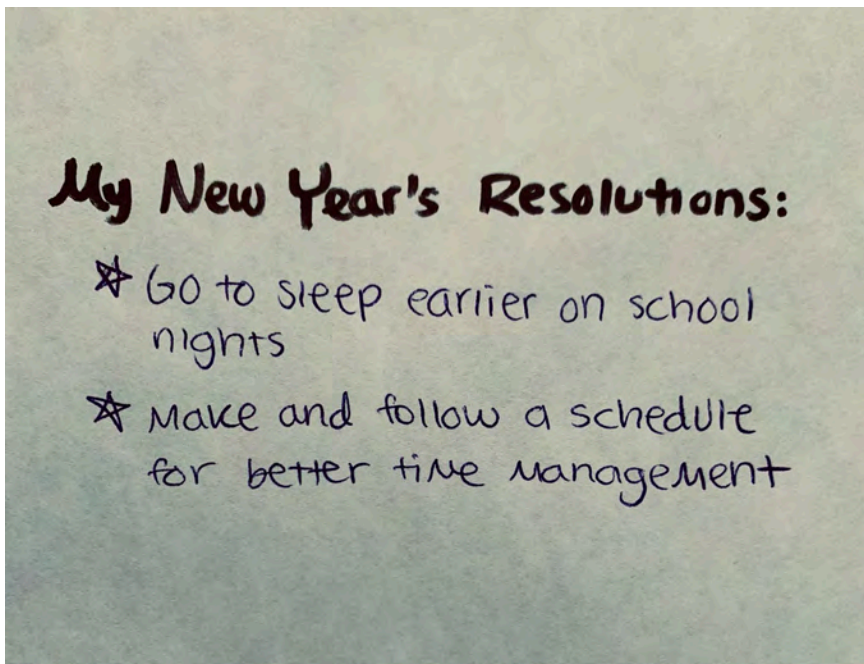 My New Year's Resolutions:
☆ Go to sleep earlier on school
nights
☆ Make and follow a schedule
for better time management